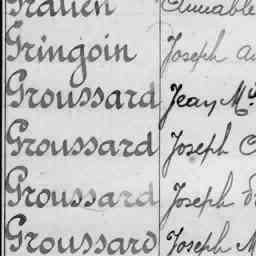 Gringoin Joseph
Groussard Jean Mie
Groussard Joseph
Groussard Joseph
Groussard Joseph M